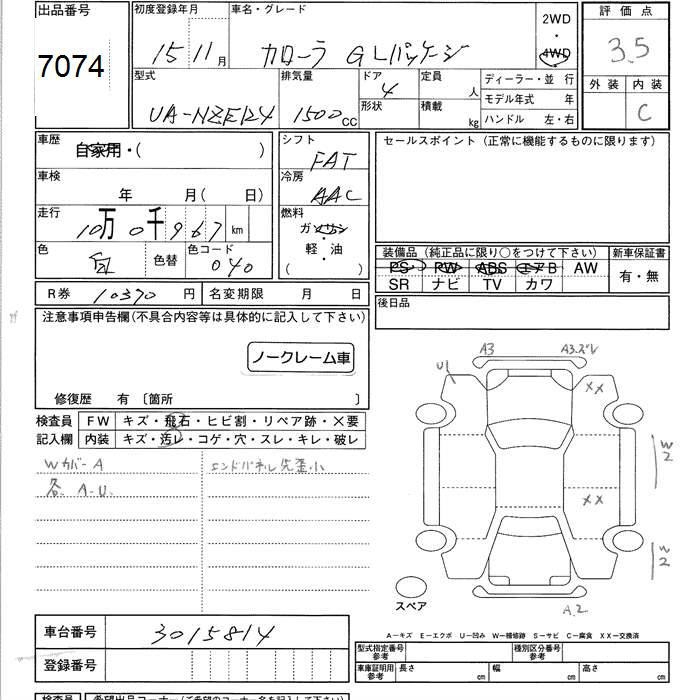 出品番号
7074
初度登録年月
15 11月
車名・グレード
カローラ GLパッケージ
2WD
・
4WD
評価点
3.5
型式
UA-NZE124
排気量
1500cc
ドア
4
形状
定員
人
積載
kg
ディーラー・並 行
モデル年式 年
ハンドル 左・右
外装 内装
C
車歴
自家用・( )
車検
年 月( 日)
走行
10万0千967km
色
白
色替
色コード
040
シフト
FAT
冷房
AAC
燃料
ガソリン
・
軽・油
( )
セールスポイント(正常に機能するものに限ります)
装備品(純正品に限り○をつけて下さい)
PS PW ABS エアB AW
SR ナビ TV カワ
新車保証書
有・無
後日品
R券 10370円
名変期限 月 日
注意事項申告欄(不具合内容等は具体的に記入して下さい)
ノークレーム車
修復歴 有 〔箇所 〕
検査員
記入欄
FW キズ・飛石・ヒビ割・リペア跡・×要
内装 キズ・汚レ・コゲ・穴・スレ・キレ・破レ
Wカバー A
各 A-U
エンドパネル先歪小
A3
A3.ズレ
U1
××
W2
××
W2
A.2
スペア
A−キズ E−エクボ U−凹み W−補修跡 S−サビ C−腐食 XX−交換済
車台番号
3015814
登録番号
型式指定番号
参考
種別区分番号
参考
車庫証明用
参考
長さ cm
幅 cm
高さ cm
検査員
希望出品コーナー(ご希望のコーナー名を記入下さい)